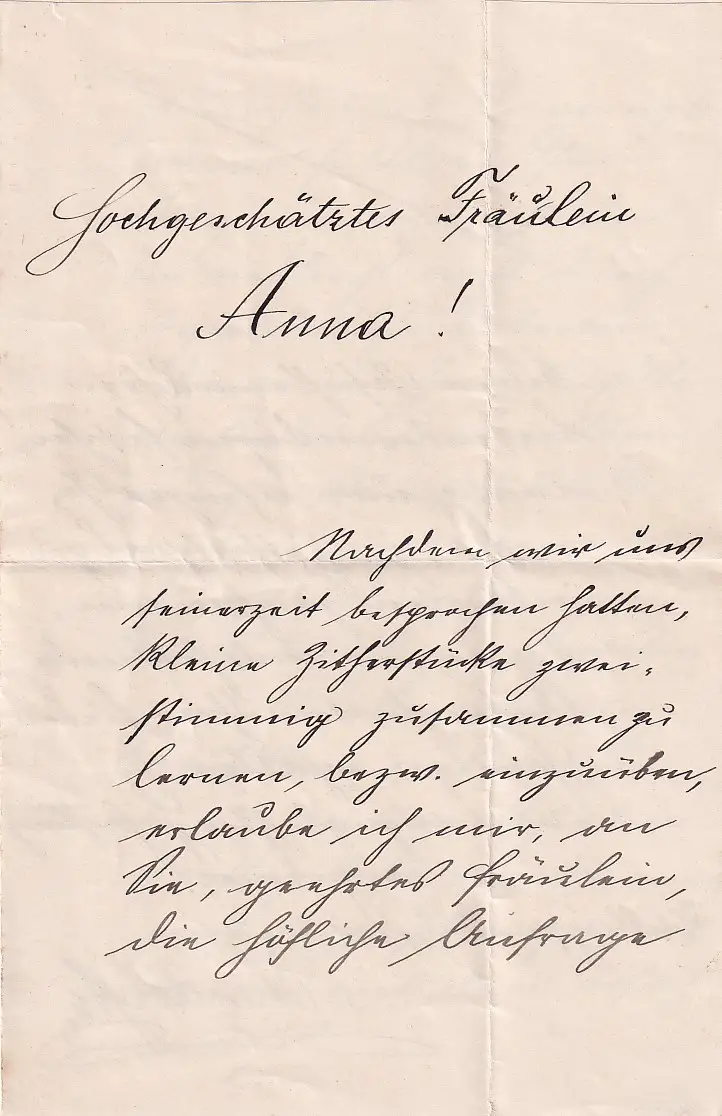 Hochgeschätztes Fräulein
Anna !
Nachdem wir uns
seinerzeit besprochen hatten,
kleine Zitherstücke zwei-
stimmig zusammen zu
lernen, bezw. einzuüben,
erlaube ich mir, an
Sie, geehrtes Fräulein,
die höfliche Anfrage